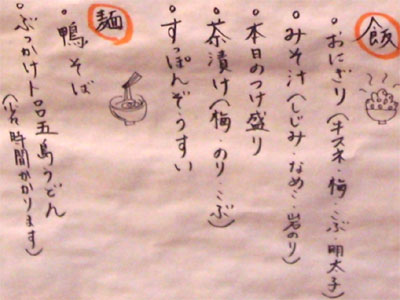 飯
・おにぎり(キスネ・梅・こぶ・明太子)
・みそ汁(しじみ・なめこ・岩のり)
・本日のつけ盛り
・茶漬け(梅・のり・こぶ)
・すっぽんぞうすい
麺
・鴨そば
・ぶっかけトロロ五島うどん
(少々時間かかります)